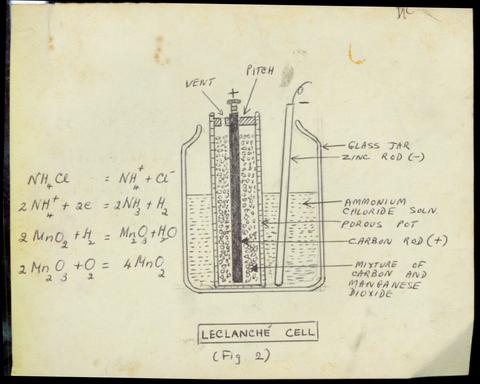 VENT
PITCH
+
−
GLASS JAR
ZINC ROD (−)
AMMONIUM
CHLORIDE SOLN.
POROUS POT
CARBON ROD (+)
MIXTURE OF
CARBON AND
MANGANESE
DIOXIDE
NH4Cl = NH4+ + Cl−
2NH4+ + 2e = 2NH3 + H2
2MnO2 + H2 = Mn2O3 + H2O
2Mn2O3 + O2 = 4MnO2
LECLANCHÉ CELL
(Fig 2)